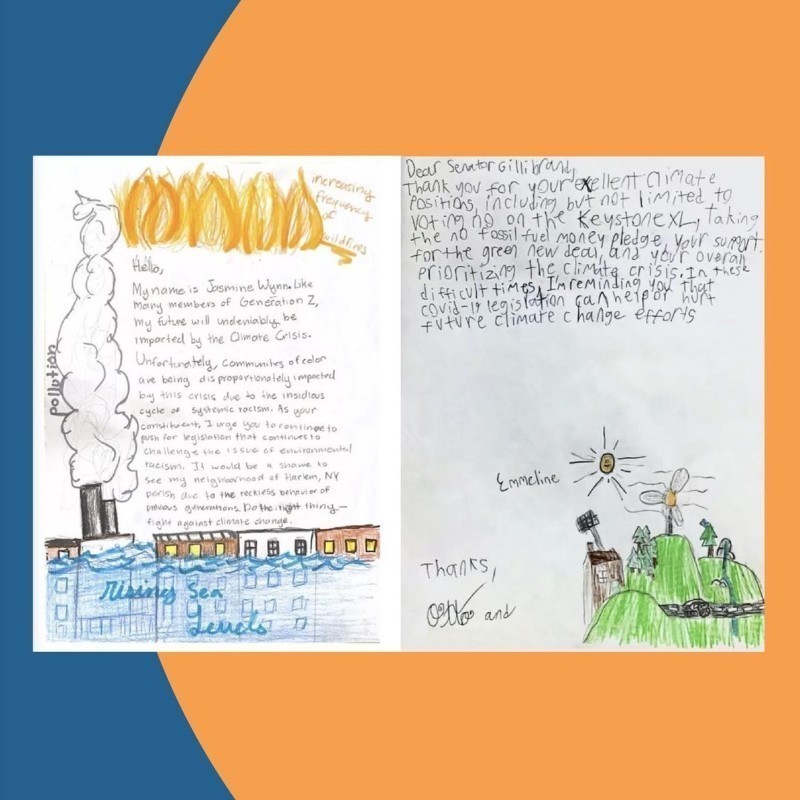 increasing
frequency
of
wildfires
Hello,
My name is Jasmine Wynn. Like
many members of Generation Z,
my future will undeniably be
impacted by the Climate Crisis.
Unfortunately, communites of color
are being disproportionately impacted
by this crisis due to the insidious
cycle of systemic racism. As your
constituent, I urge you to continue to
push for legislation that continues to
challenge the issue of environmental
racism. It would be a shame to
see my neighborhood of Harlem, NY
perish due to the reckless behavior of
previous generations. Do the right thing—
fight against climate change.
pollution
Rising Sea
Levels
Dear Senator Gillibrand,
Thank you for your exellent climate
positions, including but not limited to
voting no on the Keystone XL, taking
the no fossil fuel money pledge, your support
for the green new deal, and your overall
prioritizing the climate crisis. In these
difficult times, I'm reminding you that
covid-19 legislation can help or hurt
future climate change efforts
Emmeline
Thanks,
Otto and